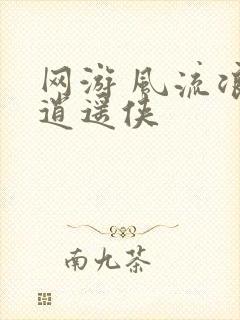 网游风流浪
逍遥侠
南九茶